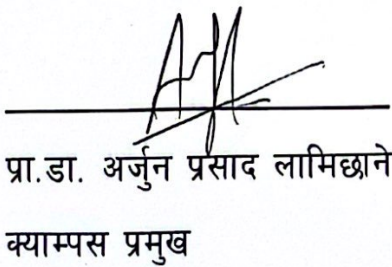 प्रा.डा. अर्जुन प्रसाद लामिछाने
क्याम्पस प्रमुख